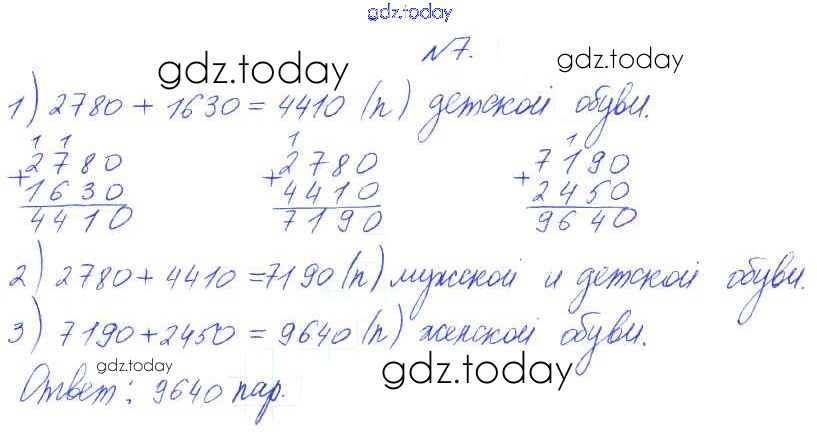 gdz.today
№7.
gdz.today gdz.today
1) 2780 + 1630 = 4410 (п) детской обуви.
1 1 1 1
+2780 +2780 +7190
1630 4410 2450
4410 7190 9640
2) 2780 + 4410 = 7190 (п) мужской и детской обуви.
3) 7190 + 2450 = 9640 (п) женской обуви.
gdz.today gdz.today
Ответ: 9640 пар.